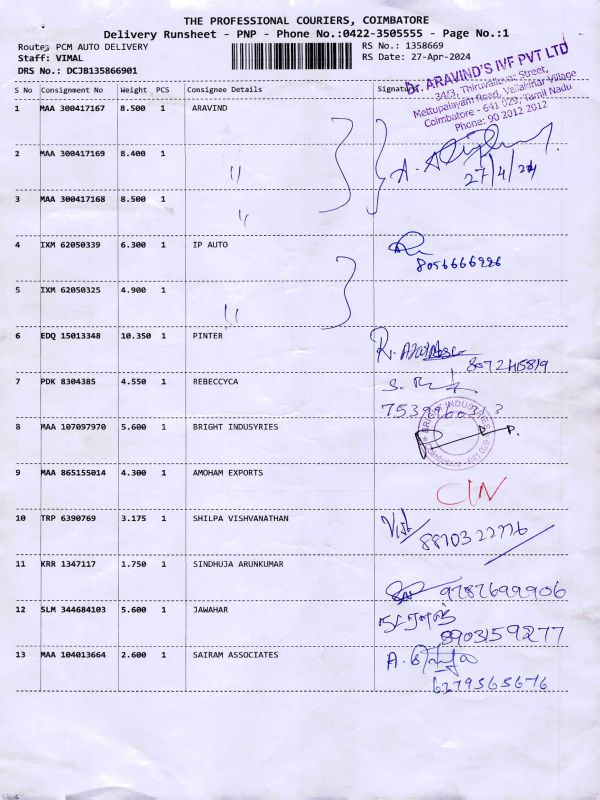 THE PROFESSIONAL COURIERS, COIMBATORE
Delivery Runsheet - PNP - Phone No.:0422-3505555 - Page No.:1
Route: PCM AUTO DELIVERY
RS No.: 1358669
Staff: VIMAL
RS Date: 27-Apr-2024
DRS No.: DCJB135866901
S No Consignment No Weight PCS Consignee Details Signature
Dr. ARAVIND'S IVF PVT LTD
34/3, Thiruvalluvar Street,
Mettupalayam Road, Vellakinar Village
Coimbatore - 641 029, Tamil Nadu
Phone: 90 2012 2012
1 MAA 300417167 8.500 1 ARAVIND
2 MAA 300417169 8.400 1 "
27/4/24
3 MAA 300417168 8.500 1 "
4 IXM 62050339 6.300 1 IP AUTO
8056666986
5 IXM 62050325 4.900 1 "
6 EDQ 15013348 10.350 1 PINTER
7 PDK 8304385 4.550 1 REBECCYCA
8 MAA 107097970 5.600 1 BRIGHT INDUSYRIES
BRIGHT INDUSTRIES
Coimbatore - 641 029
9 MAA 865155014 4.300 1 AMOHAM EXPORTS
CIN
10 TRP 6390769 3.175 1 SHILPA VISHVANATHAN
11 KRR 1347117 1.750 1 SINDHUJA ARUNKUMAR
9787699906
12 SLM 344684103 5.600 1 JAWAHAR
8903159277
13 MAA 104013664 2.600 1 SAIRAM ASSOCIATES
6379565676